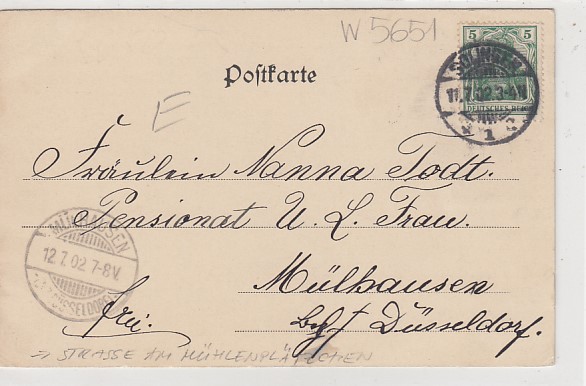 W 5651
5 5
DEUTSCHES REICH
SOLINGEN
11.7.02.3-4N
* 1 c
Postkarte
E
Fräulein Nanna Todt.
Pensionat U. L. Frau.
Mülhausen
Düsseldorf.
frei.
MÜLHAUSEN
12.7.02 7-8V.
DÜSSELDORF
→ STRASSE AM MÜHLENPLÄTZCHEN